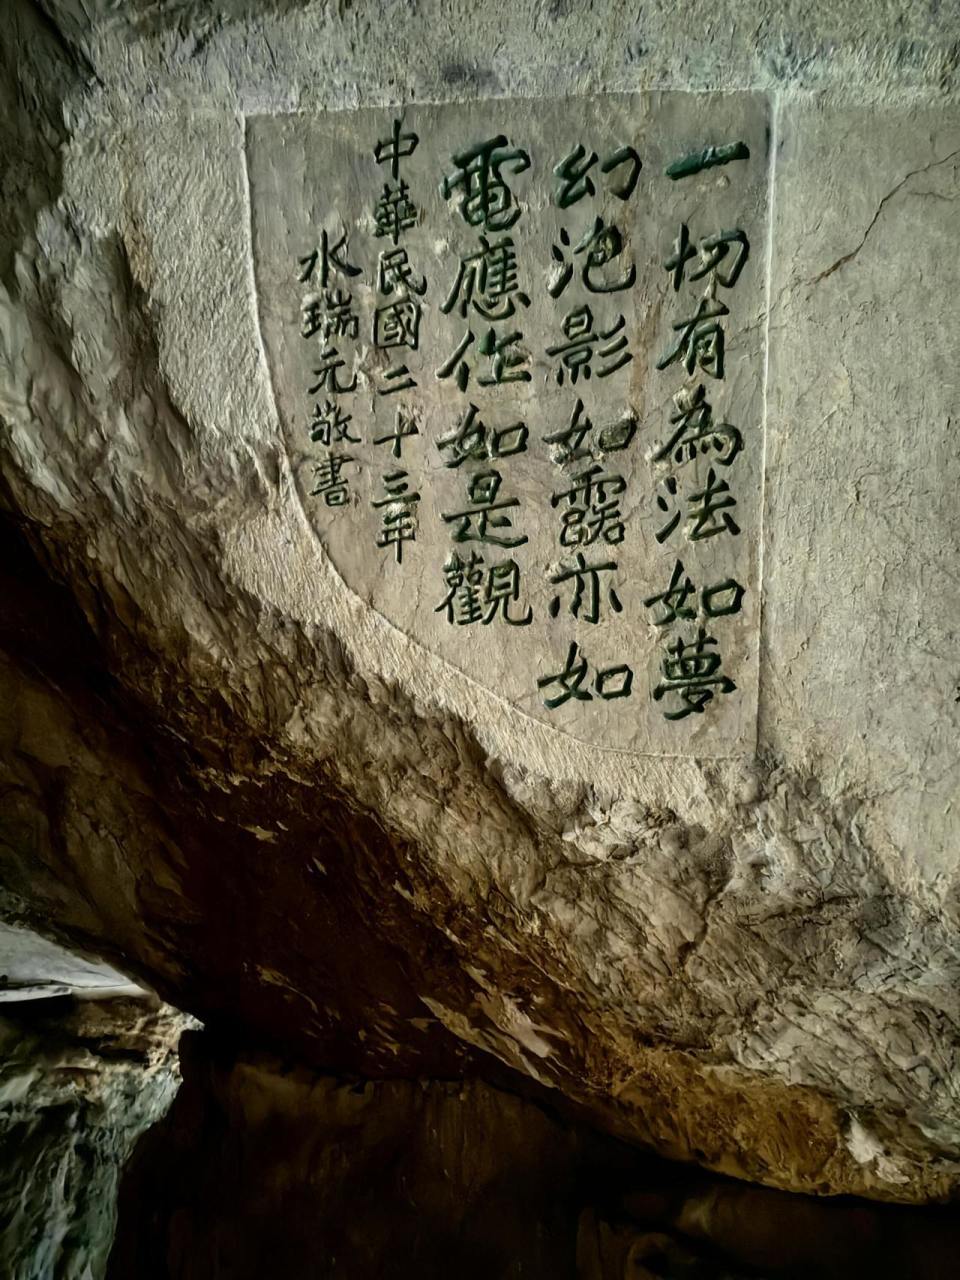 一切有為法如夢
幻泡影如露亦如
電應作如是觀
中華民國二十三年
水瑞元敬書